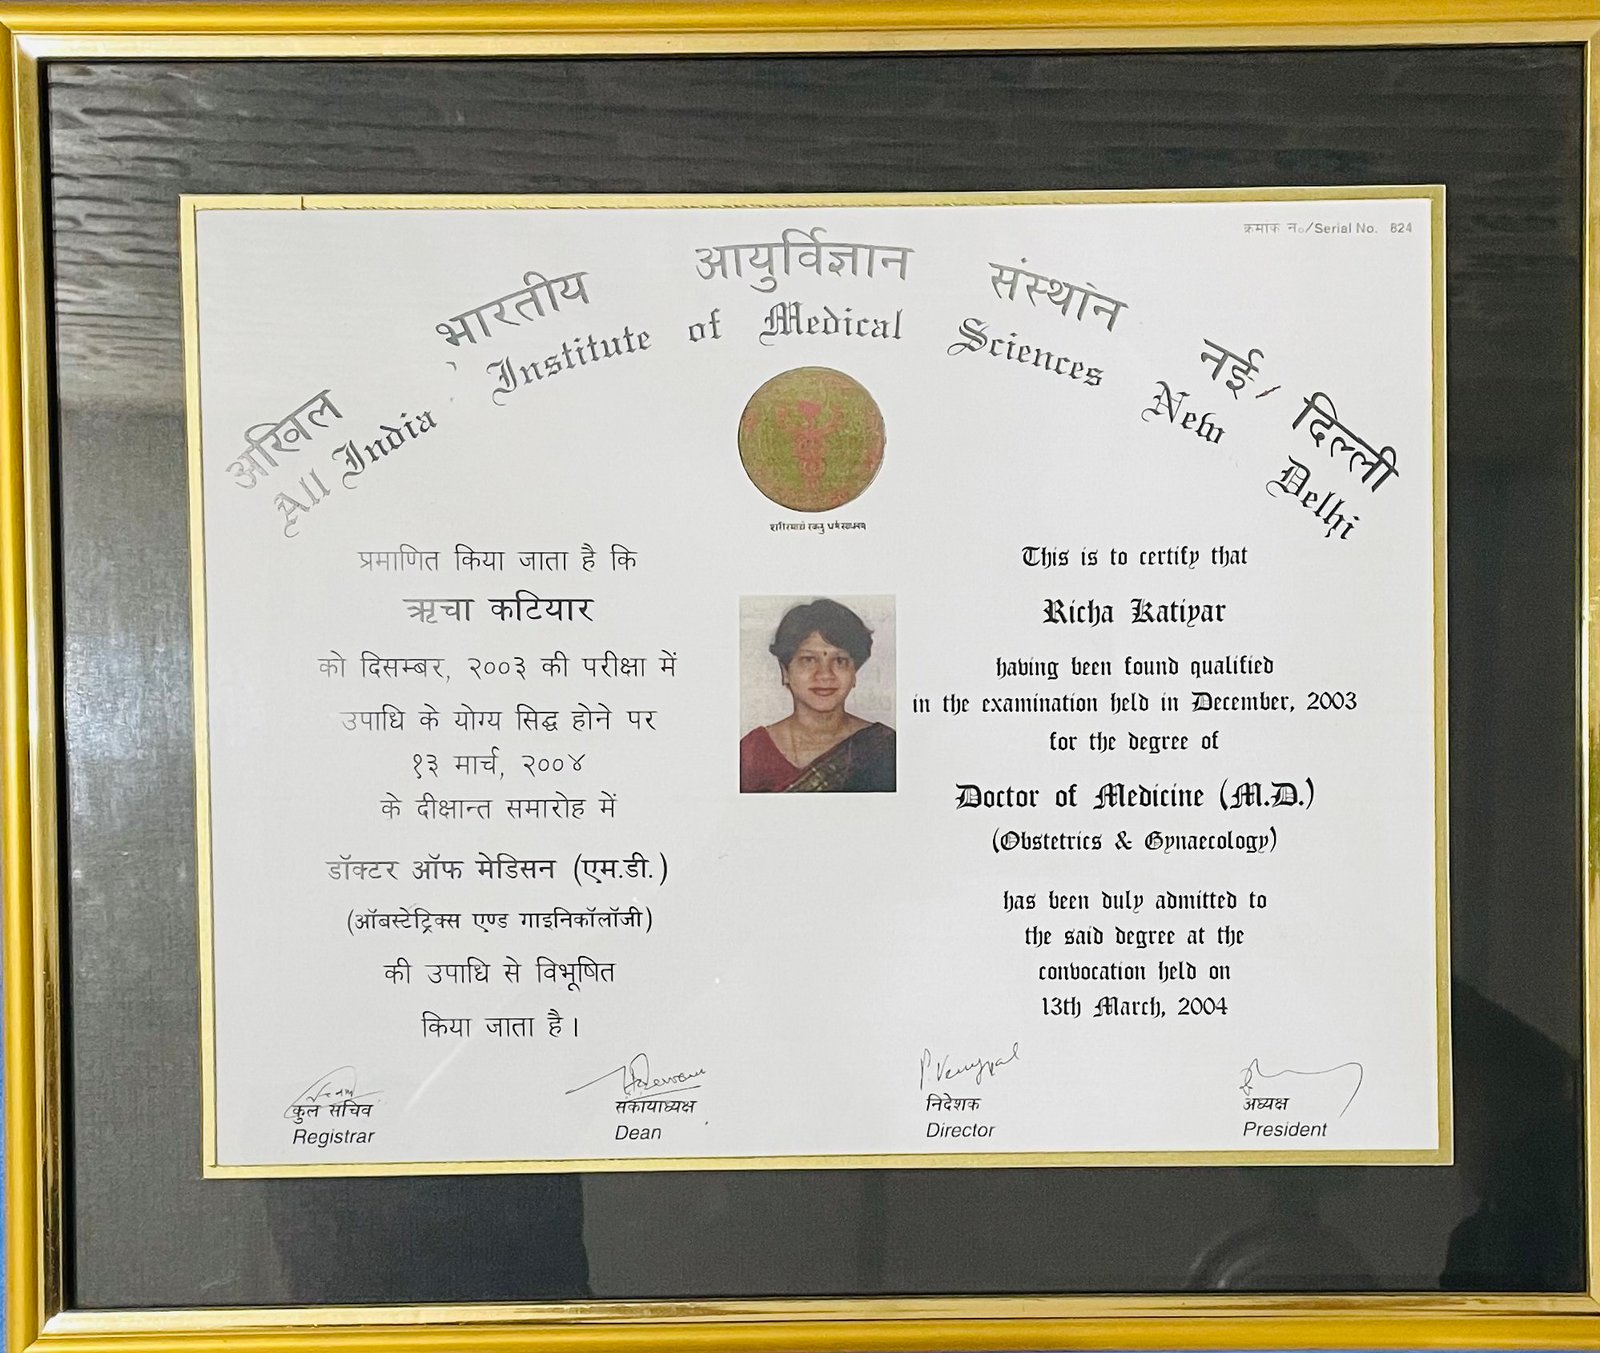 क्रमांक नo/Serial No. 824
अखिल भारतीय आयुर्विज्ञान संस्थान नई दिल्ली
All India Institute of Medical Sciences New Delhi
प्रमाणित किया जाता है कि
ऋचा कटियार
को दिसम्बर, २००३ की परीक्षा में
उपाधि के योग्य सिद्ध होने पर
१३ मार्च, २००४
के दीक्षान्त समारोह में
डॉक्टर ऑफ मेडिसन (एम.डी.)
(ऑबस्टेट्रिक्स एण्ड गाइनिकॉलॉजी)
की उपाधि से विभूषित
किया जाता है।
This is to certify that
Richa Katiyar
having been found qualified
in the examination held in December, 2003
for the degree of
Doctor of Medicine (M.D.)
(Obstetrics & Gynaecology)
has been duly admitted to
the said degree at the
convocation held on
13th March, 2004
कुल सचिव
Registrar
संकायाध्यक्ष
Dean
P. Venugopal
निदेशक
Director
अध्यक्ष
President